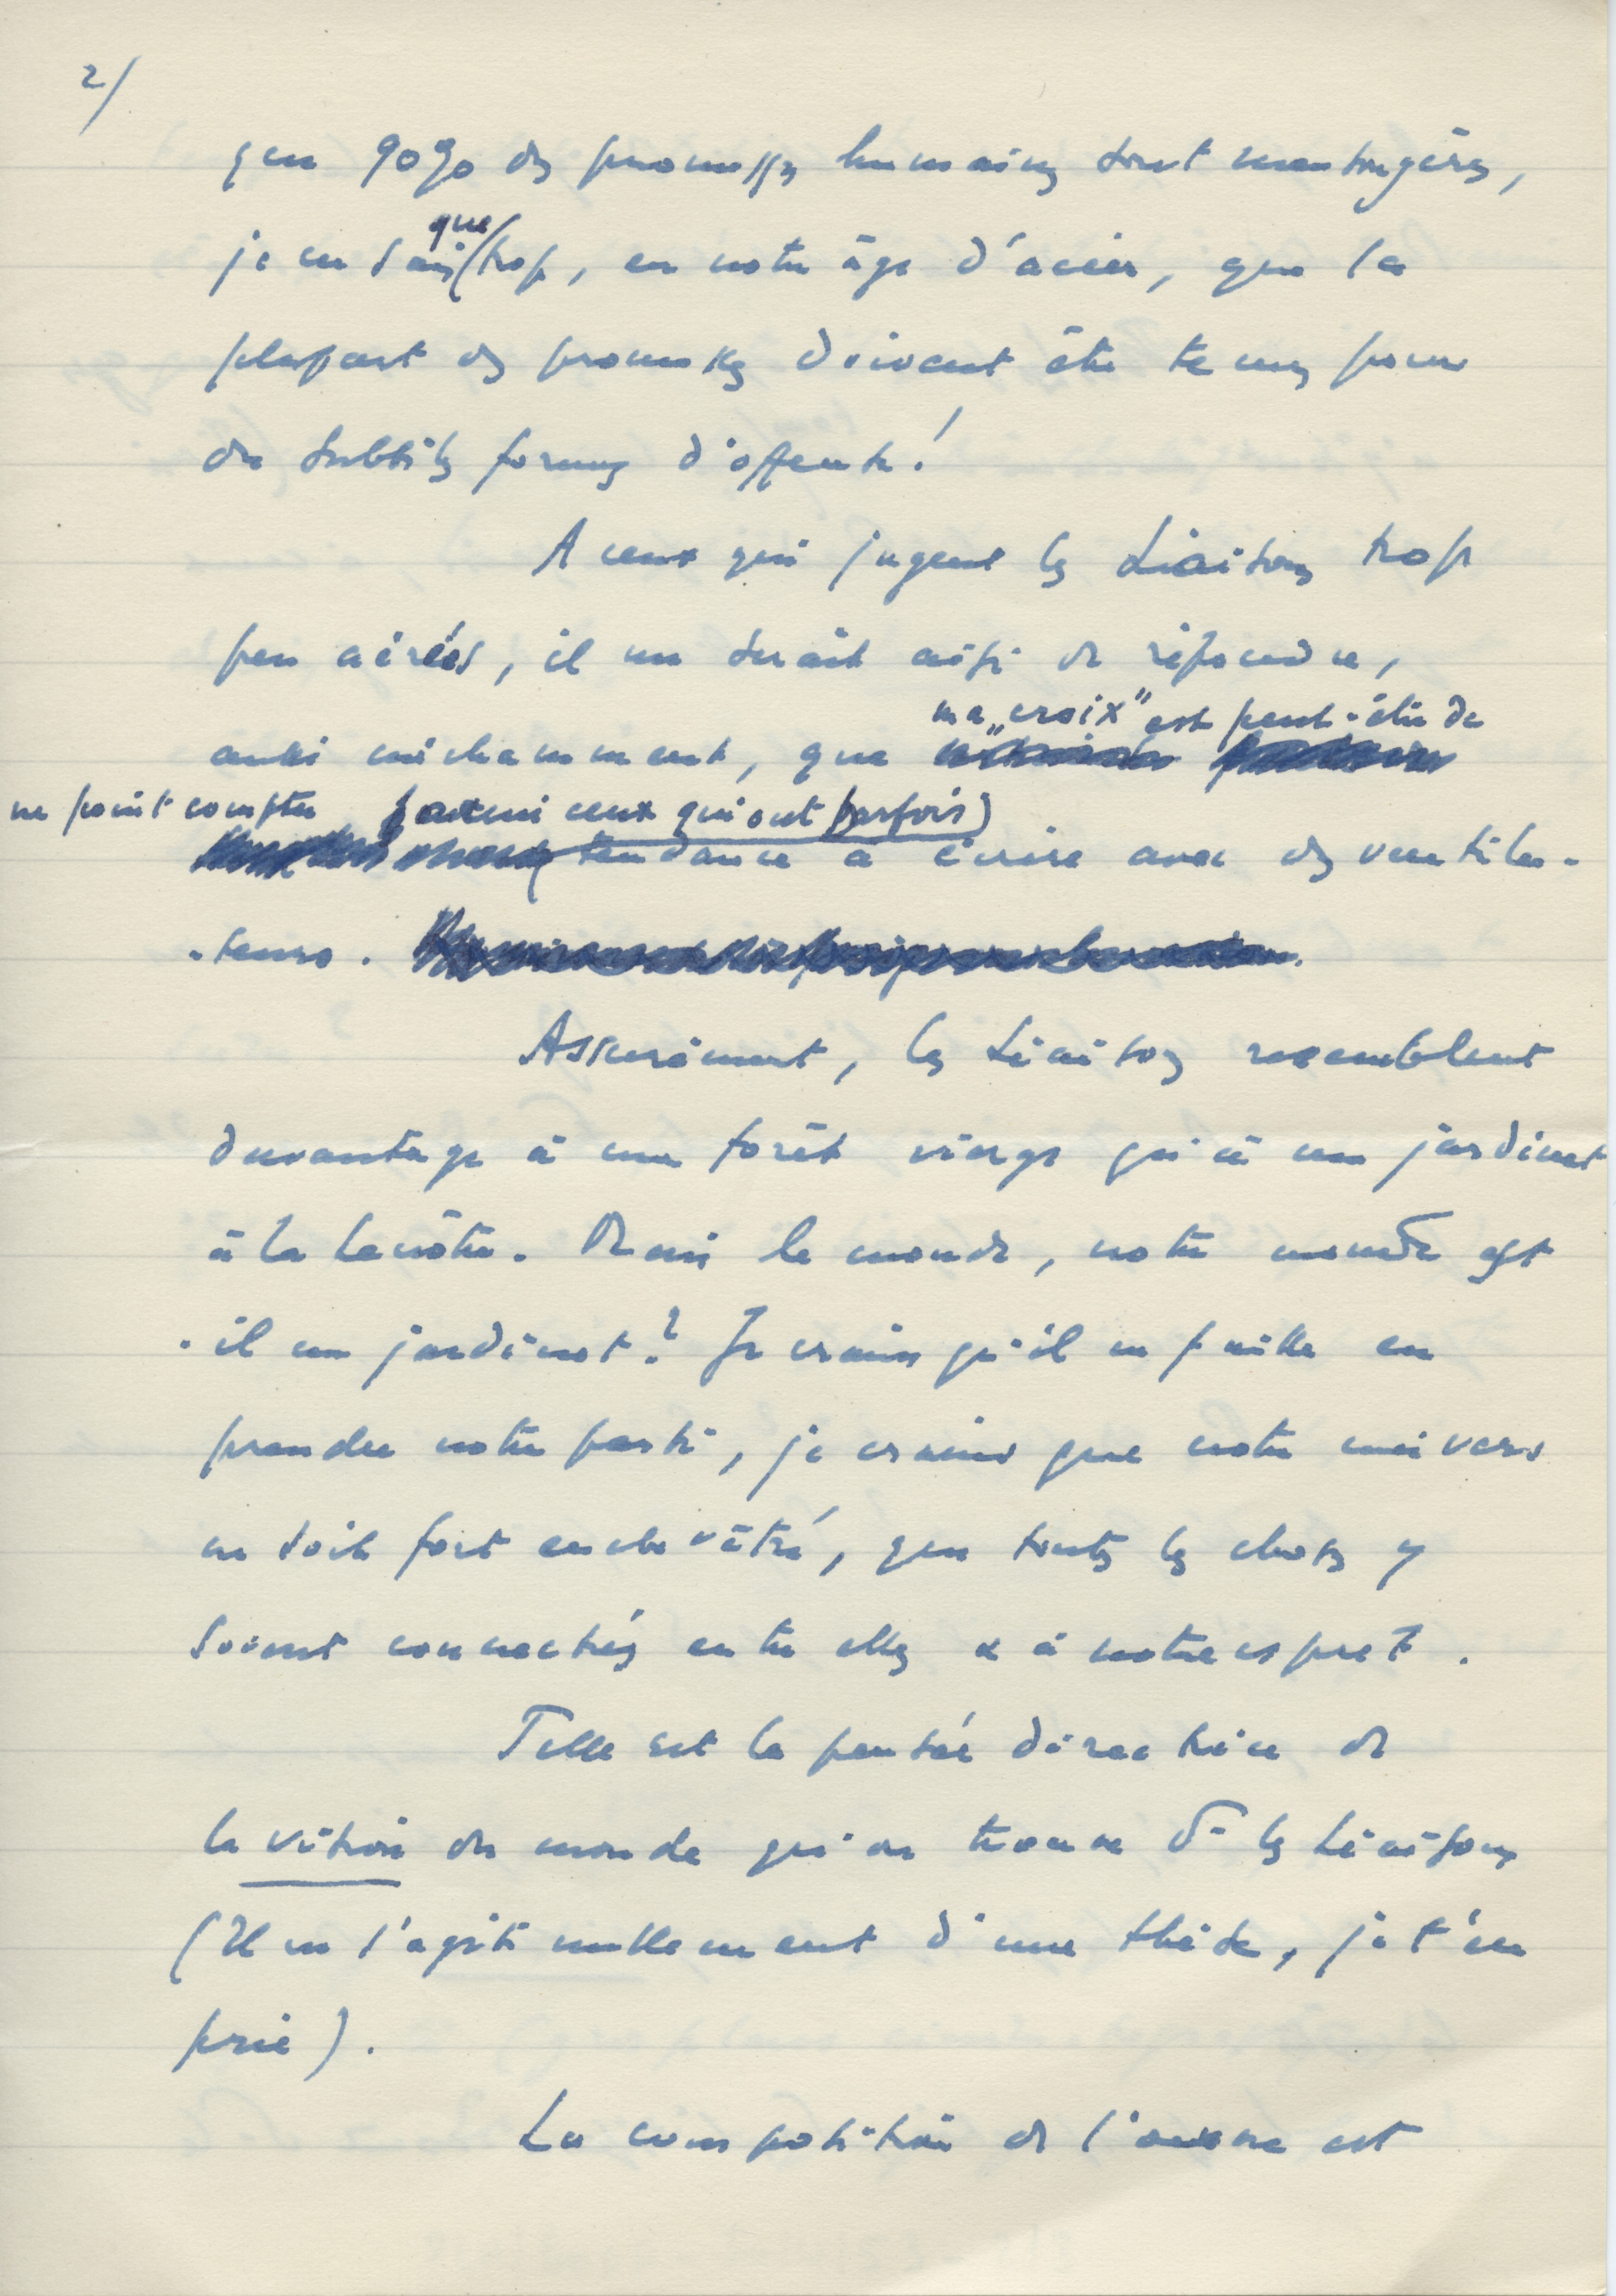 2/
que 90% des promesses humaines sont mensongères,
je ne sais que trop, en notre âge d'acier, que la
plupart des promesses doivent être tenues pour
de subtiles formes d'offense !
A ceux qui jugent les Liaisons trop
peu aérées, il me serait aisé de répondre,
aussi méchamment, que ma „croix" est peut-être de
ne point compter parmi ceux qui ont (parfois)
tendance à écrire avec des ventila-
-teurs.
Assurément, les Liaisons ressemblent
davantage à une forêt vierge qu'à un jardinet
à la Lenôtre. Mais le monde, notre monde est
-il un jardinet ? Je crains qu'il ne faille en
prendre notre parti, je crains que notre univers
ne soit fort enchevêtré, que toutes les choses y
soient connectées entre elles & à notre esprit.
Telle est la pensée directrice de
la vision du monde qu'on trouve ds les Liaisons
(Il ne s'agit nullement d'une thèse, je t'en
prie).
La composition de l'œuvre est